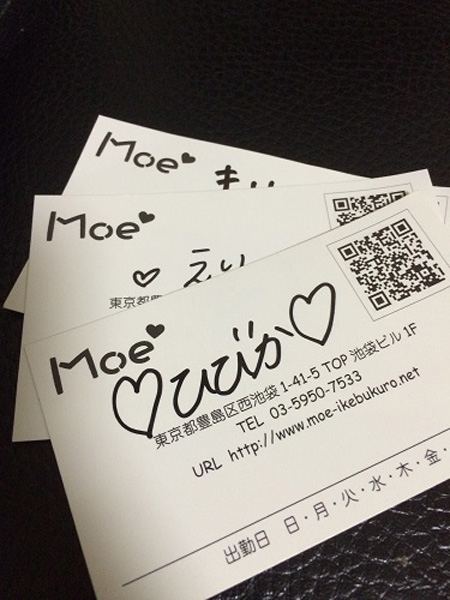 Moe♥
Moe♥
♡ えり
東京都豊
Moe♥
♡ひびか♡
東京都豊島区西池袋1-41-5 TOP 池袋ビル 1F
TEL 03-5950-7533
URL http://www.moe-ikebukuro.net
出勤日 日・月・火・水・木・金・